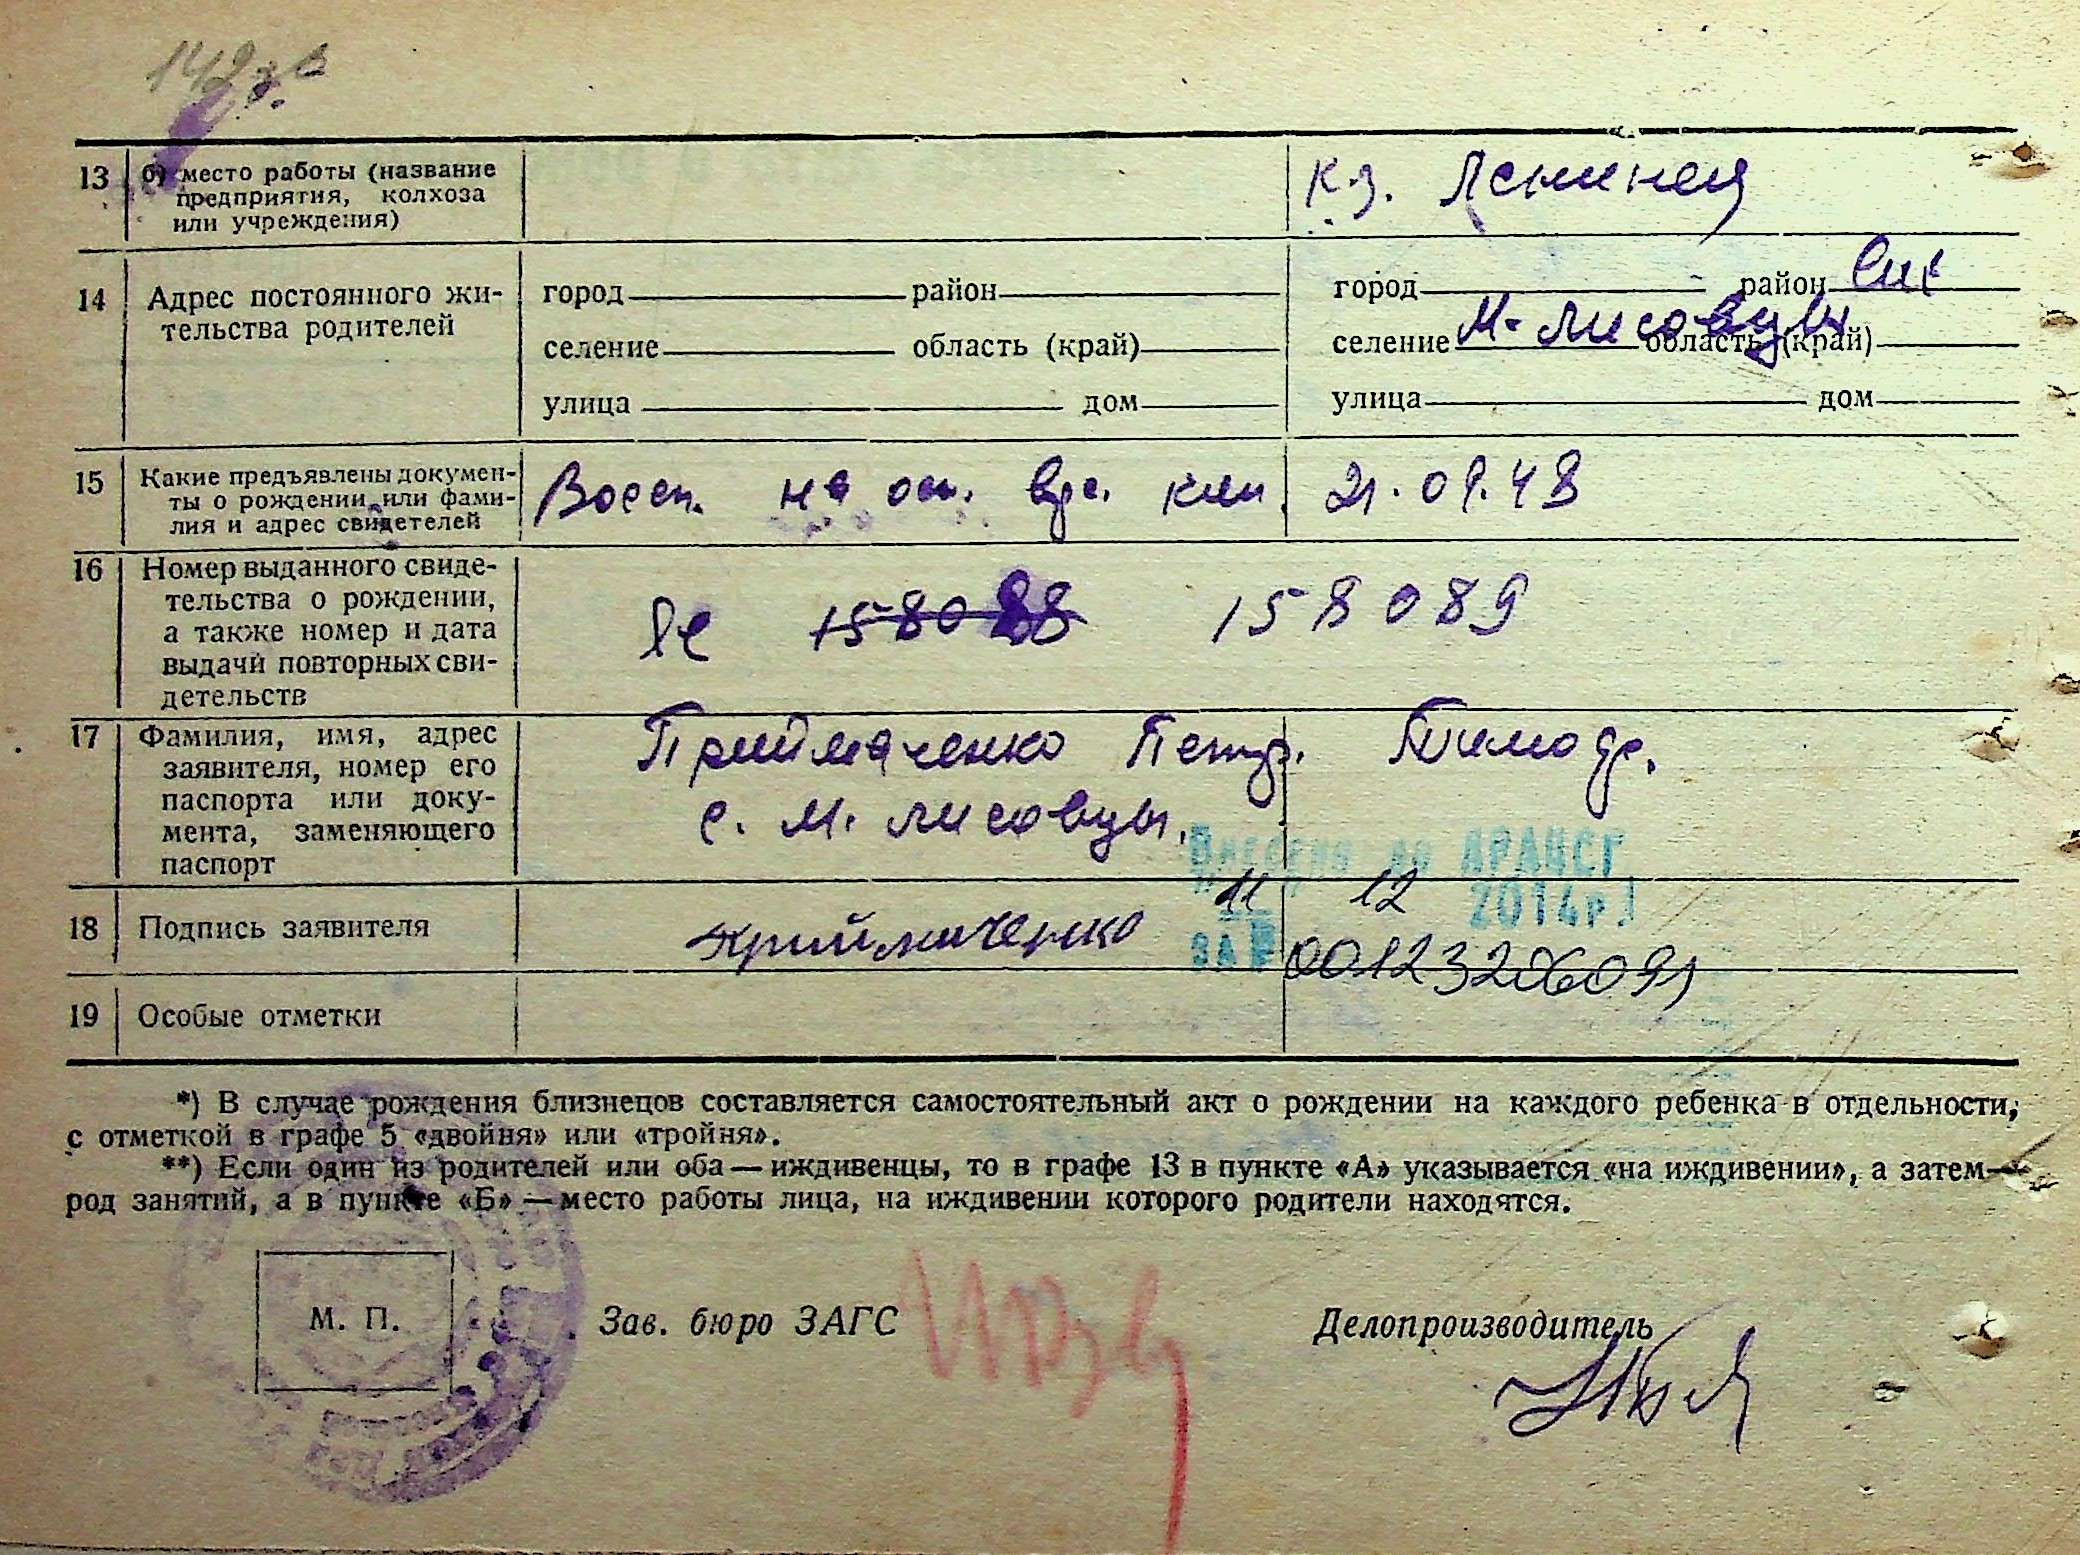 142
13 б) место работы (название
предприятия, колхоза
или учреждения)
кз. Ленинец
14 Адрес постоянного жи-
тельства родителей
город район
селение область (край)
улица дом
город район
селение М-Лисовцы область (край)
улица дом
15 Какие предъявлены докумен-
ты о рождении или фами-
лия и адрес свидетелей
Восст. на ос. кни. 21.09.48
16 Номер выданного свиде-
тельства о рождении,
а также номер и дата
выдачи повторных сви-
детельств
158088 158089
17 Фамилия, имя, адрес
заявителя, номер его
паспорта или доку-
мента, заменяющего
паспорт
Приймаченко Петр. Тимоф.
с. М. Лисовцы.
Внесено до ДРАЦСГ
"11" 12 2014р.
ЗА № 00123206091
18 Подпись заявителя
Приймаченко
19 Особые отметки
*) В случае рождения близнецов составляется самостоятельный акт о рождении на каждого ребенка в отдельности,
с отметкой в графе 5 «двойня» или «тройня».
**) Если один из родителей или оба — иждивенцы, то в графе 13 в пункте «А» указывается «на иждивении», а затем —
род занятий, а в пункте «Б» — место работы лица, на иждивении которого родители находятся.
М. П. Зав. бюро ЗАГС Делопроизводитель